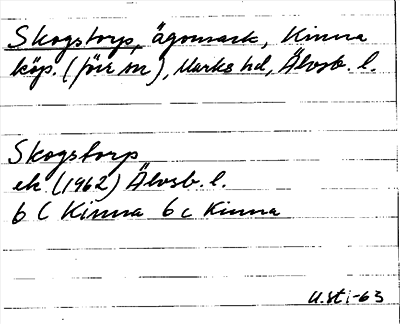 Skogstorp, ägomark, Kinna
köp. (förr sn), Marks hd, Älvsb. l.
Skogstorp
ek (1962) Älvsb. l.
6 C Kinna 6 c Kinna
U.Sti-63